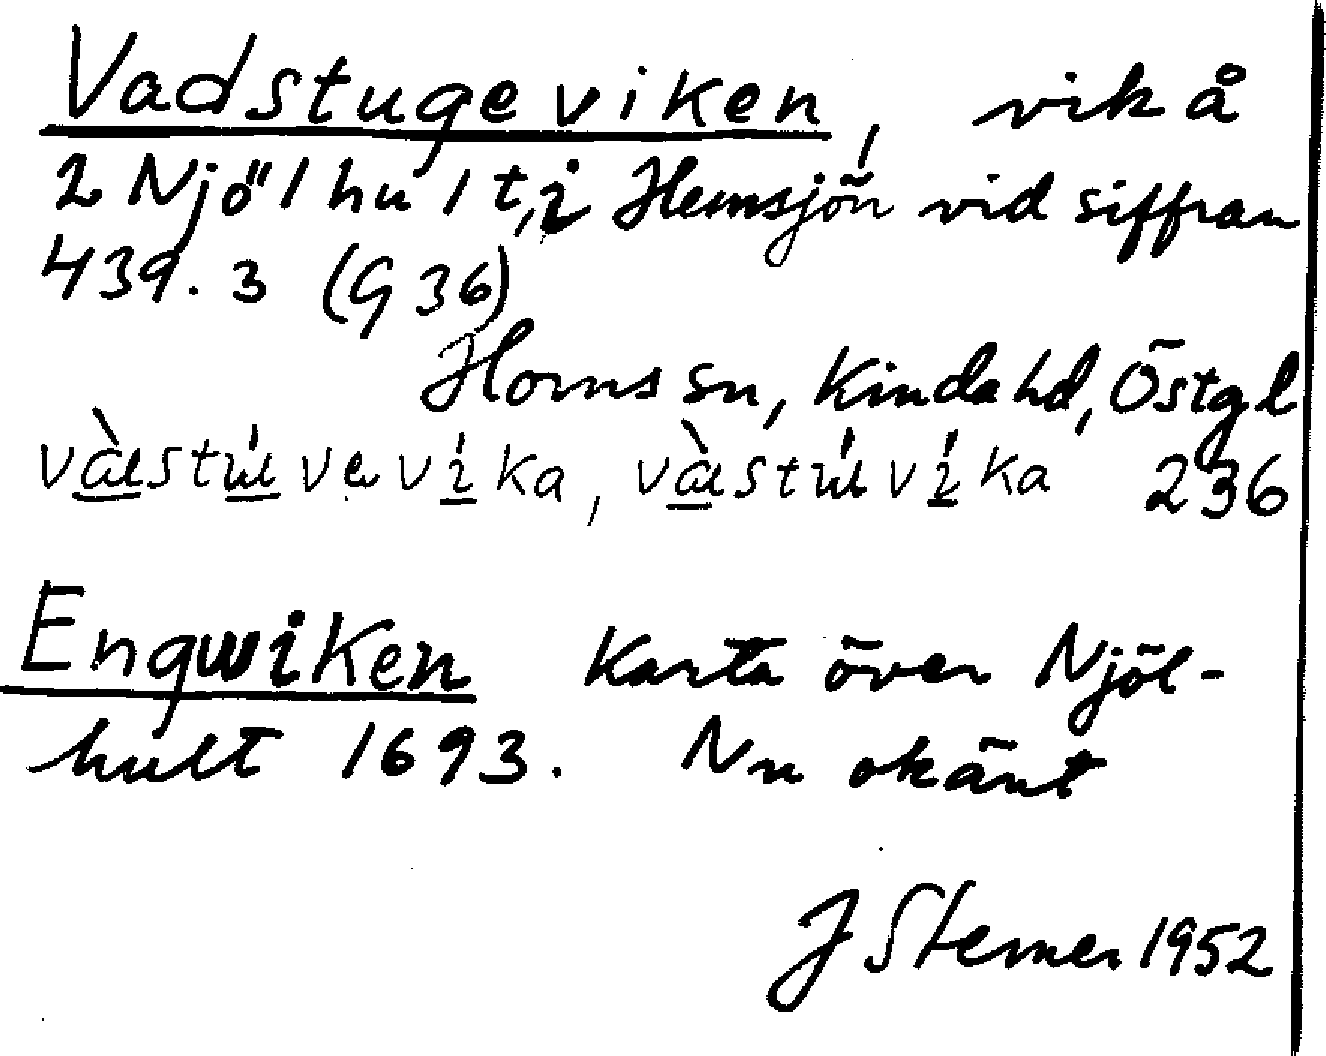 Vadstugeviken, vik å
2 Njölhult, i Hemsjön vid siffran
439.3 (G 36)
Horns sn, Kinda hd, Östgl
våestúu ve víka, våestúu víka 236
Engwiken Karta över Njöl-
hult 1693. Nu okänt
J Sterner 1952